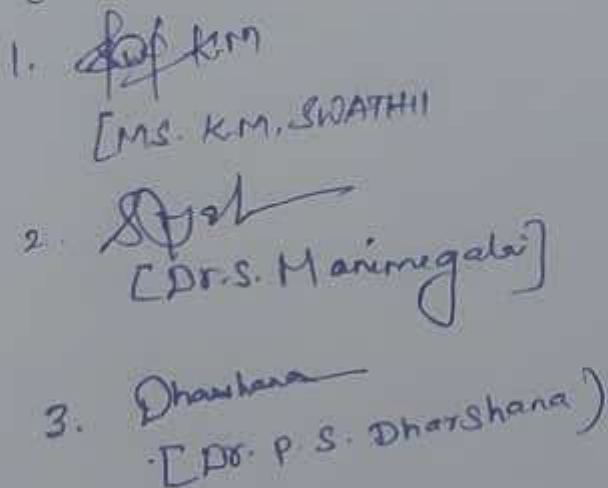 1. K.M
[MS. K.M. SWATHII
2.
[Dr. S. Manimegalai]
3. Dharshana
[Dr. P. S. Dharshana)